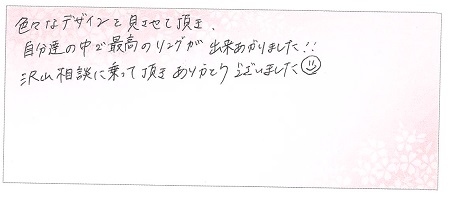 色々なデザインを見させて頂き、
自分達の中で最高のリングが出来あがりました!!
沢山相談に乗って頂きありがとうございました